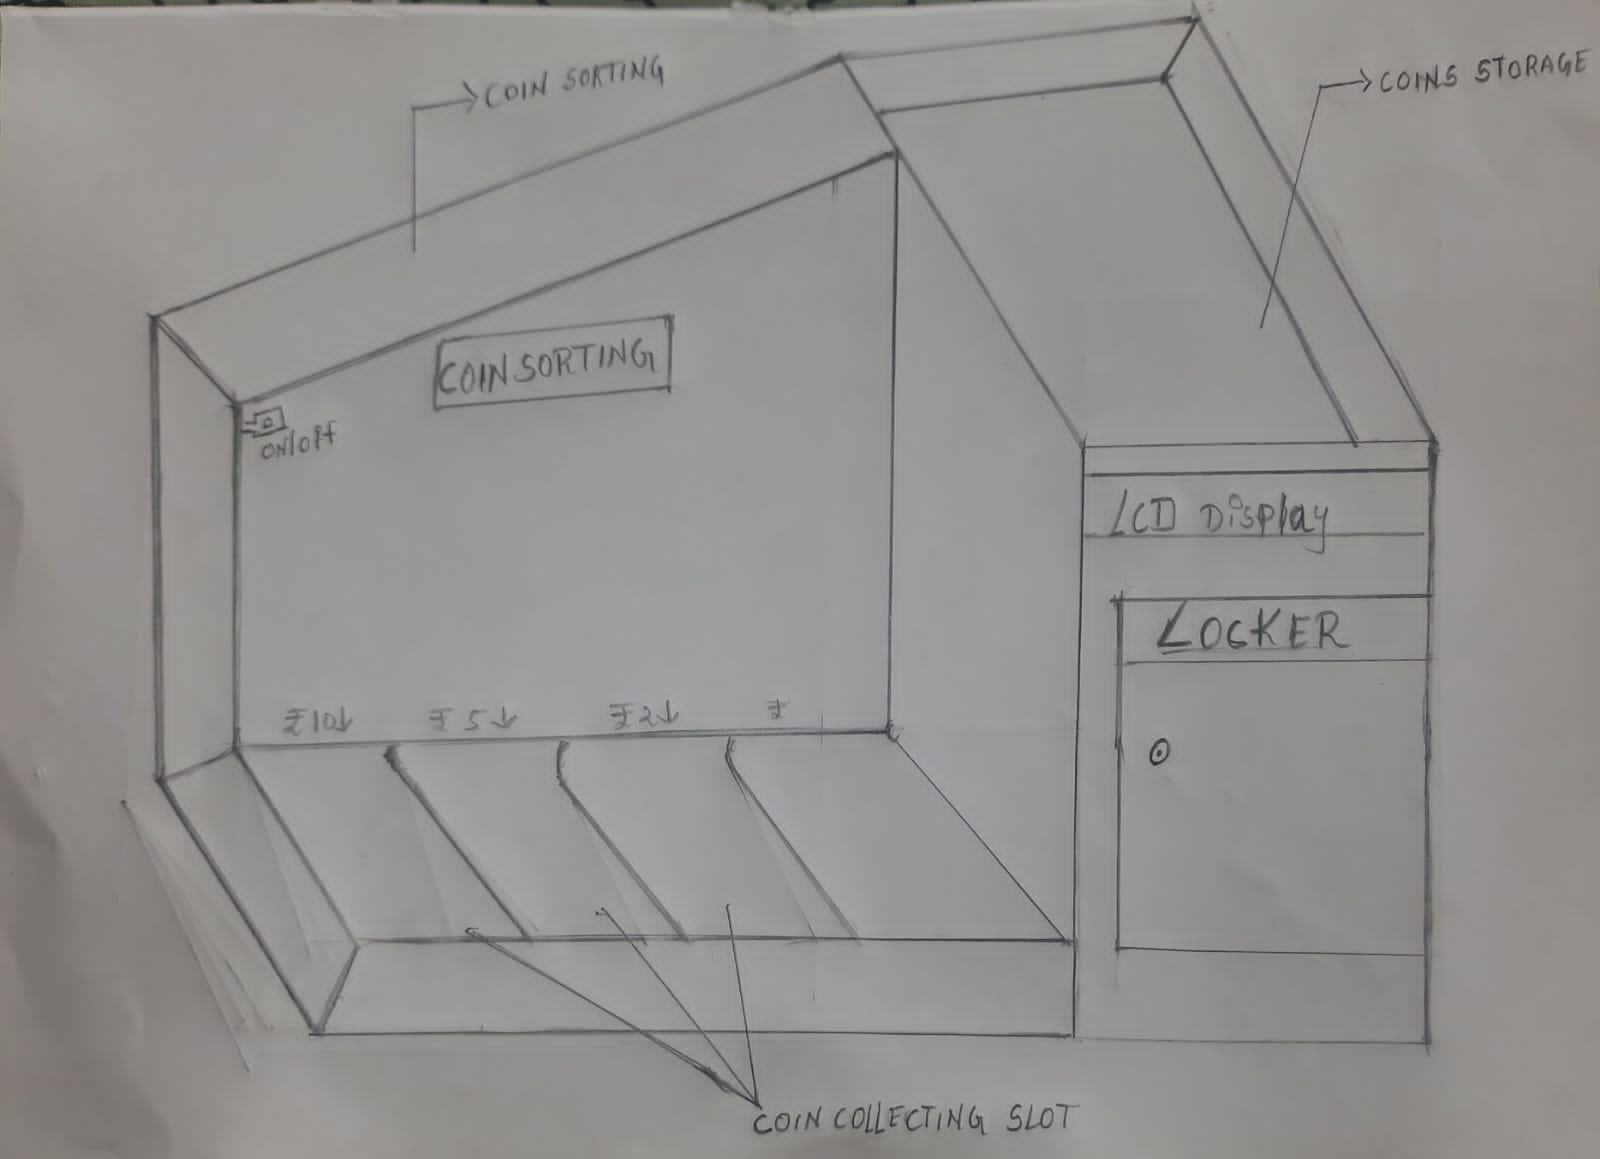 COIN SORTING
COINS STORAGE
COIN SORTING
ON/OFF
LCD Display
LOCKER
₹10↓ ₹5↓ ₹2↓ ₹
COIN COLLECTING SLOT